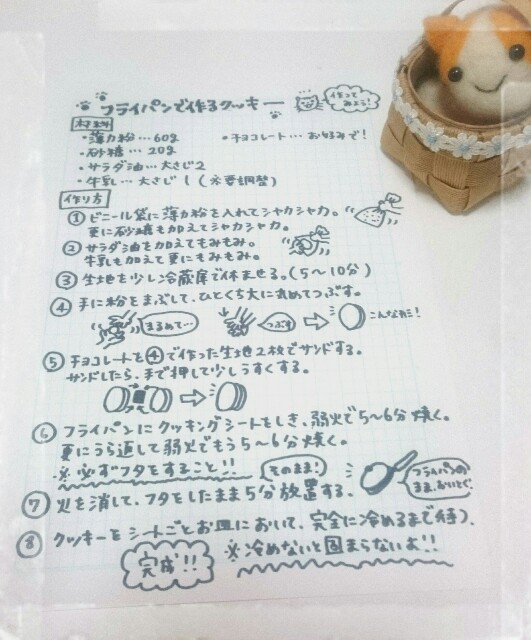 フライパンで作るクッキー
作ってみよう!
材料
・薄力粉…60g ・チョコレート…お好みで!
・砂糖…20g
・サラダ油…大さじ2
・牛乳…大さじ1(要調整)
作り方
①ビニール袋に薄力粉を入れてシャカシャカ。
更に砂糖も加えてシャカシャカ。
②サラダ油を加えてもみもみ。
牛乳も加えて更にもみもみ。
③生地を少し冷蔵庫で休ませる。(5〜10分)
④手に粉をまぶして、ひとくち大に丸めてつぶす。
まるめて… つぶす こんなカンジ!
⑤チョコレートを④で作った生地2枚でサンドする。
サンドしたら、手で押して少しうすくする。
⑥フライパンにクッキングシートをしき、弱火で5〜6分焼く。
更にうら返して弱火でもう5〜6分焼く。
※必ずフタをすること!!
そのまま!
⑦火を消して、フタをしたまま5分放置する。
フライパンのまま、おいとく。
⑧クッキーをシートごとお皿において、完全に冷めるまで待つ。
※冷めないと固まらないよ!!
完成!!